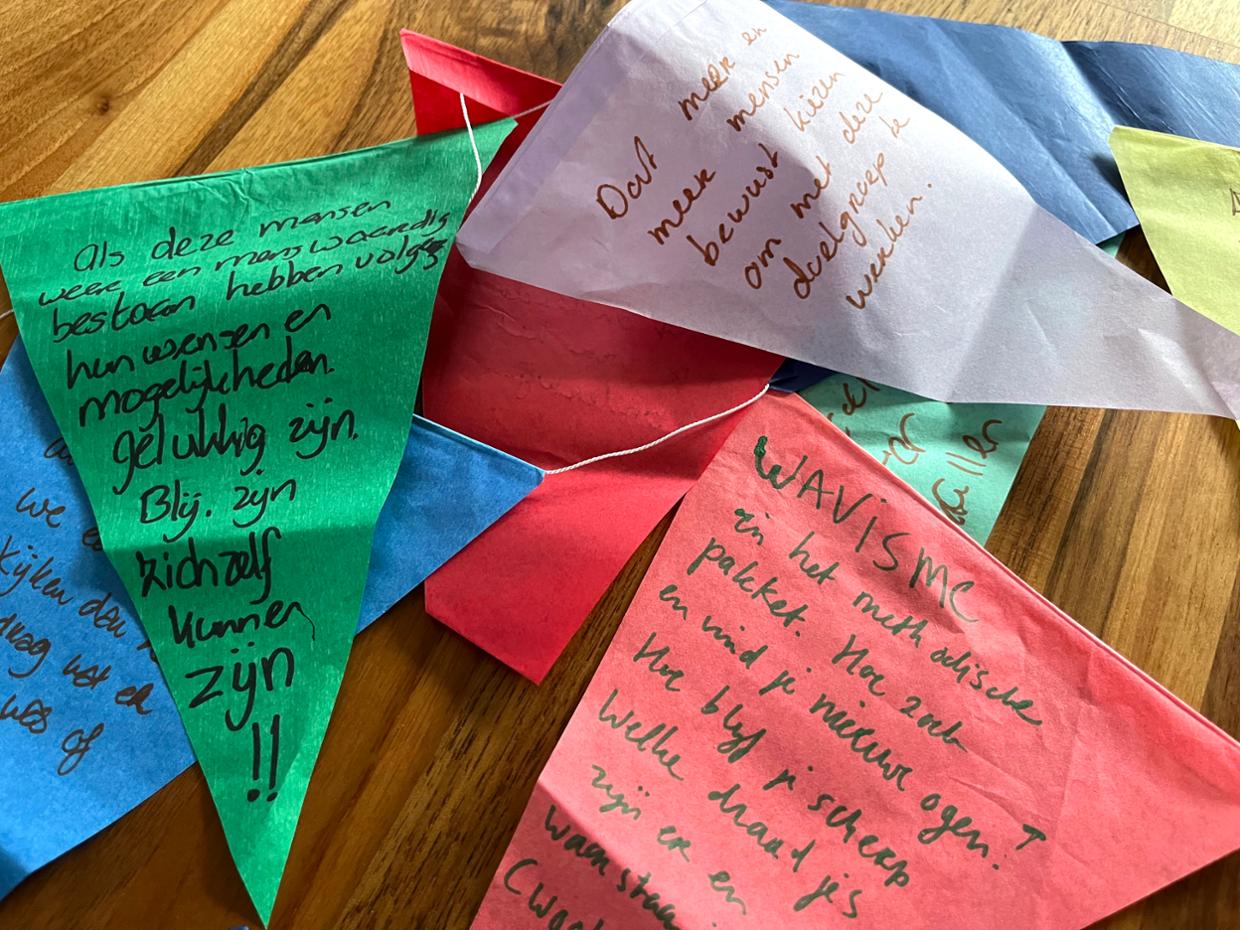 Als deze mensen
weer een menswaardig
bestaan hebben volgs
hun wensen en
mogelijkheden.
gelukkig zijn.
Blij. zijn
zichzelf
kunnen
zijn
!!
Dat meer en
meer mensen
bewust kiezen
om met deze
doelgroep te
werken.
WAVISME
in het methodische
pakket. Hoe zoek
en vind je nieuwe ogen?
Hoe blijf je scherp
Welke draadjes
zijn er en
we
kijken dan
wat er
of